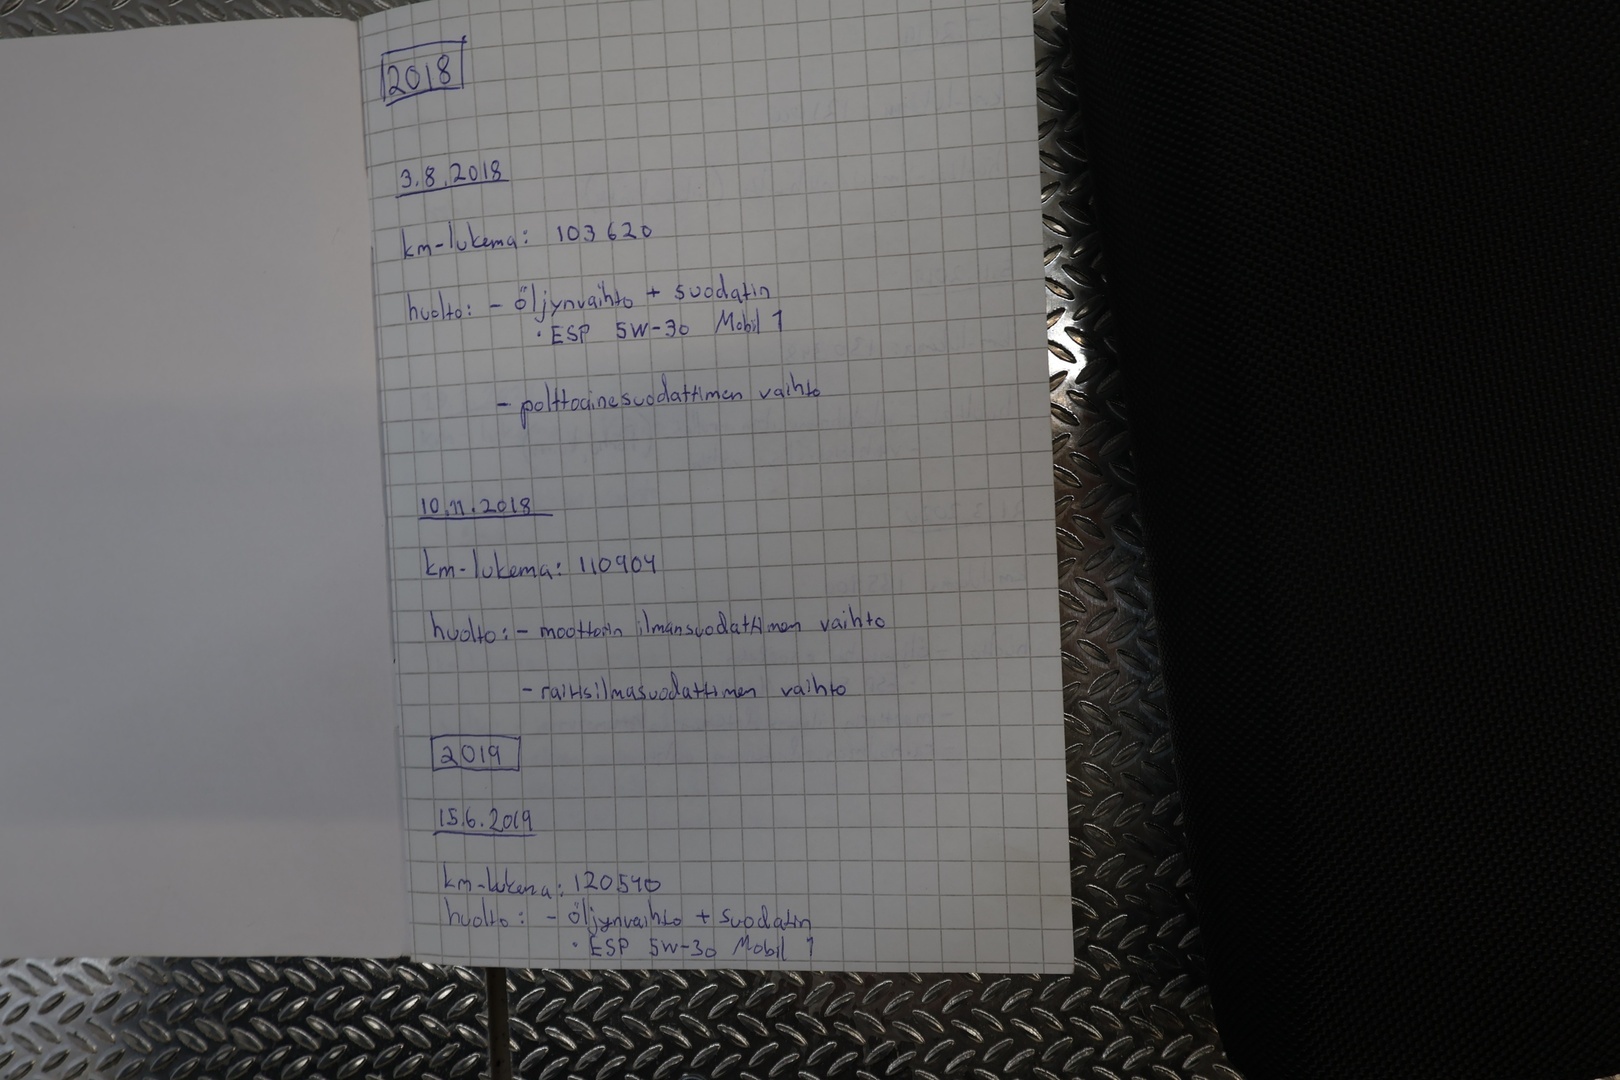 2018
3.8.2018
km-lukema: 103 620
huolto: - öljynvaihto + suodatin
• ESP 5W-30 Mobil 1
- polttoainesuodattimen vaihto
10.11.2018
km-lukema: 110904
huolto: - moottorin ilmansuodattimen vaihto
- raitisilmasuodattimen vaihto
2019
15.6.2019
km-lukema: 120540
huolto: - öljynvaihto + suodatin
• ESP 5W-30 Mobil 1